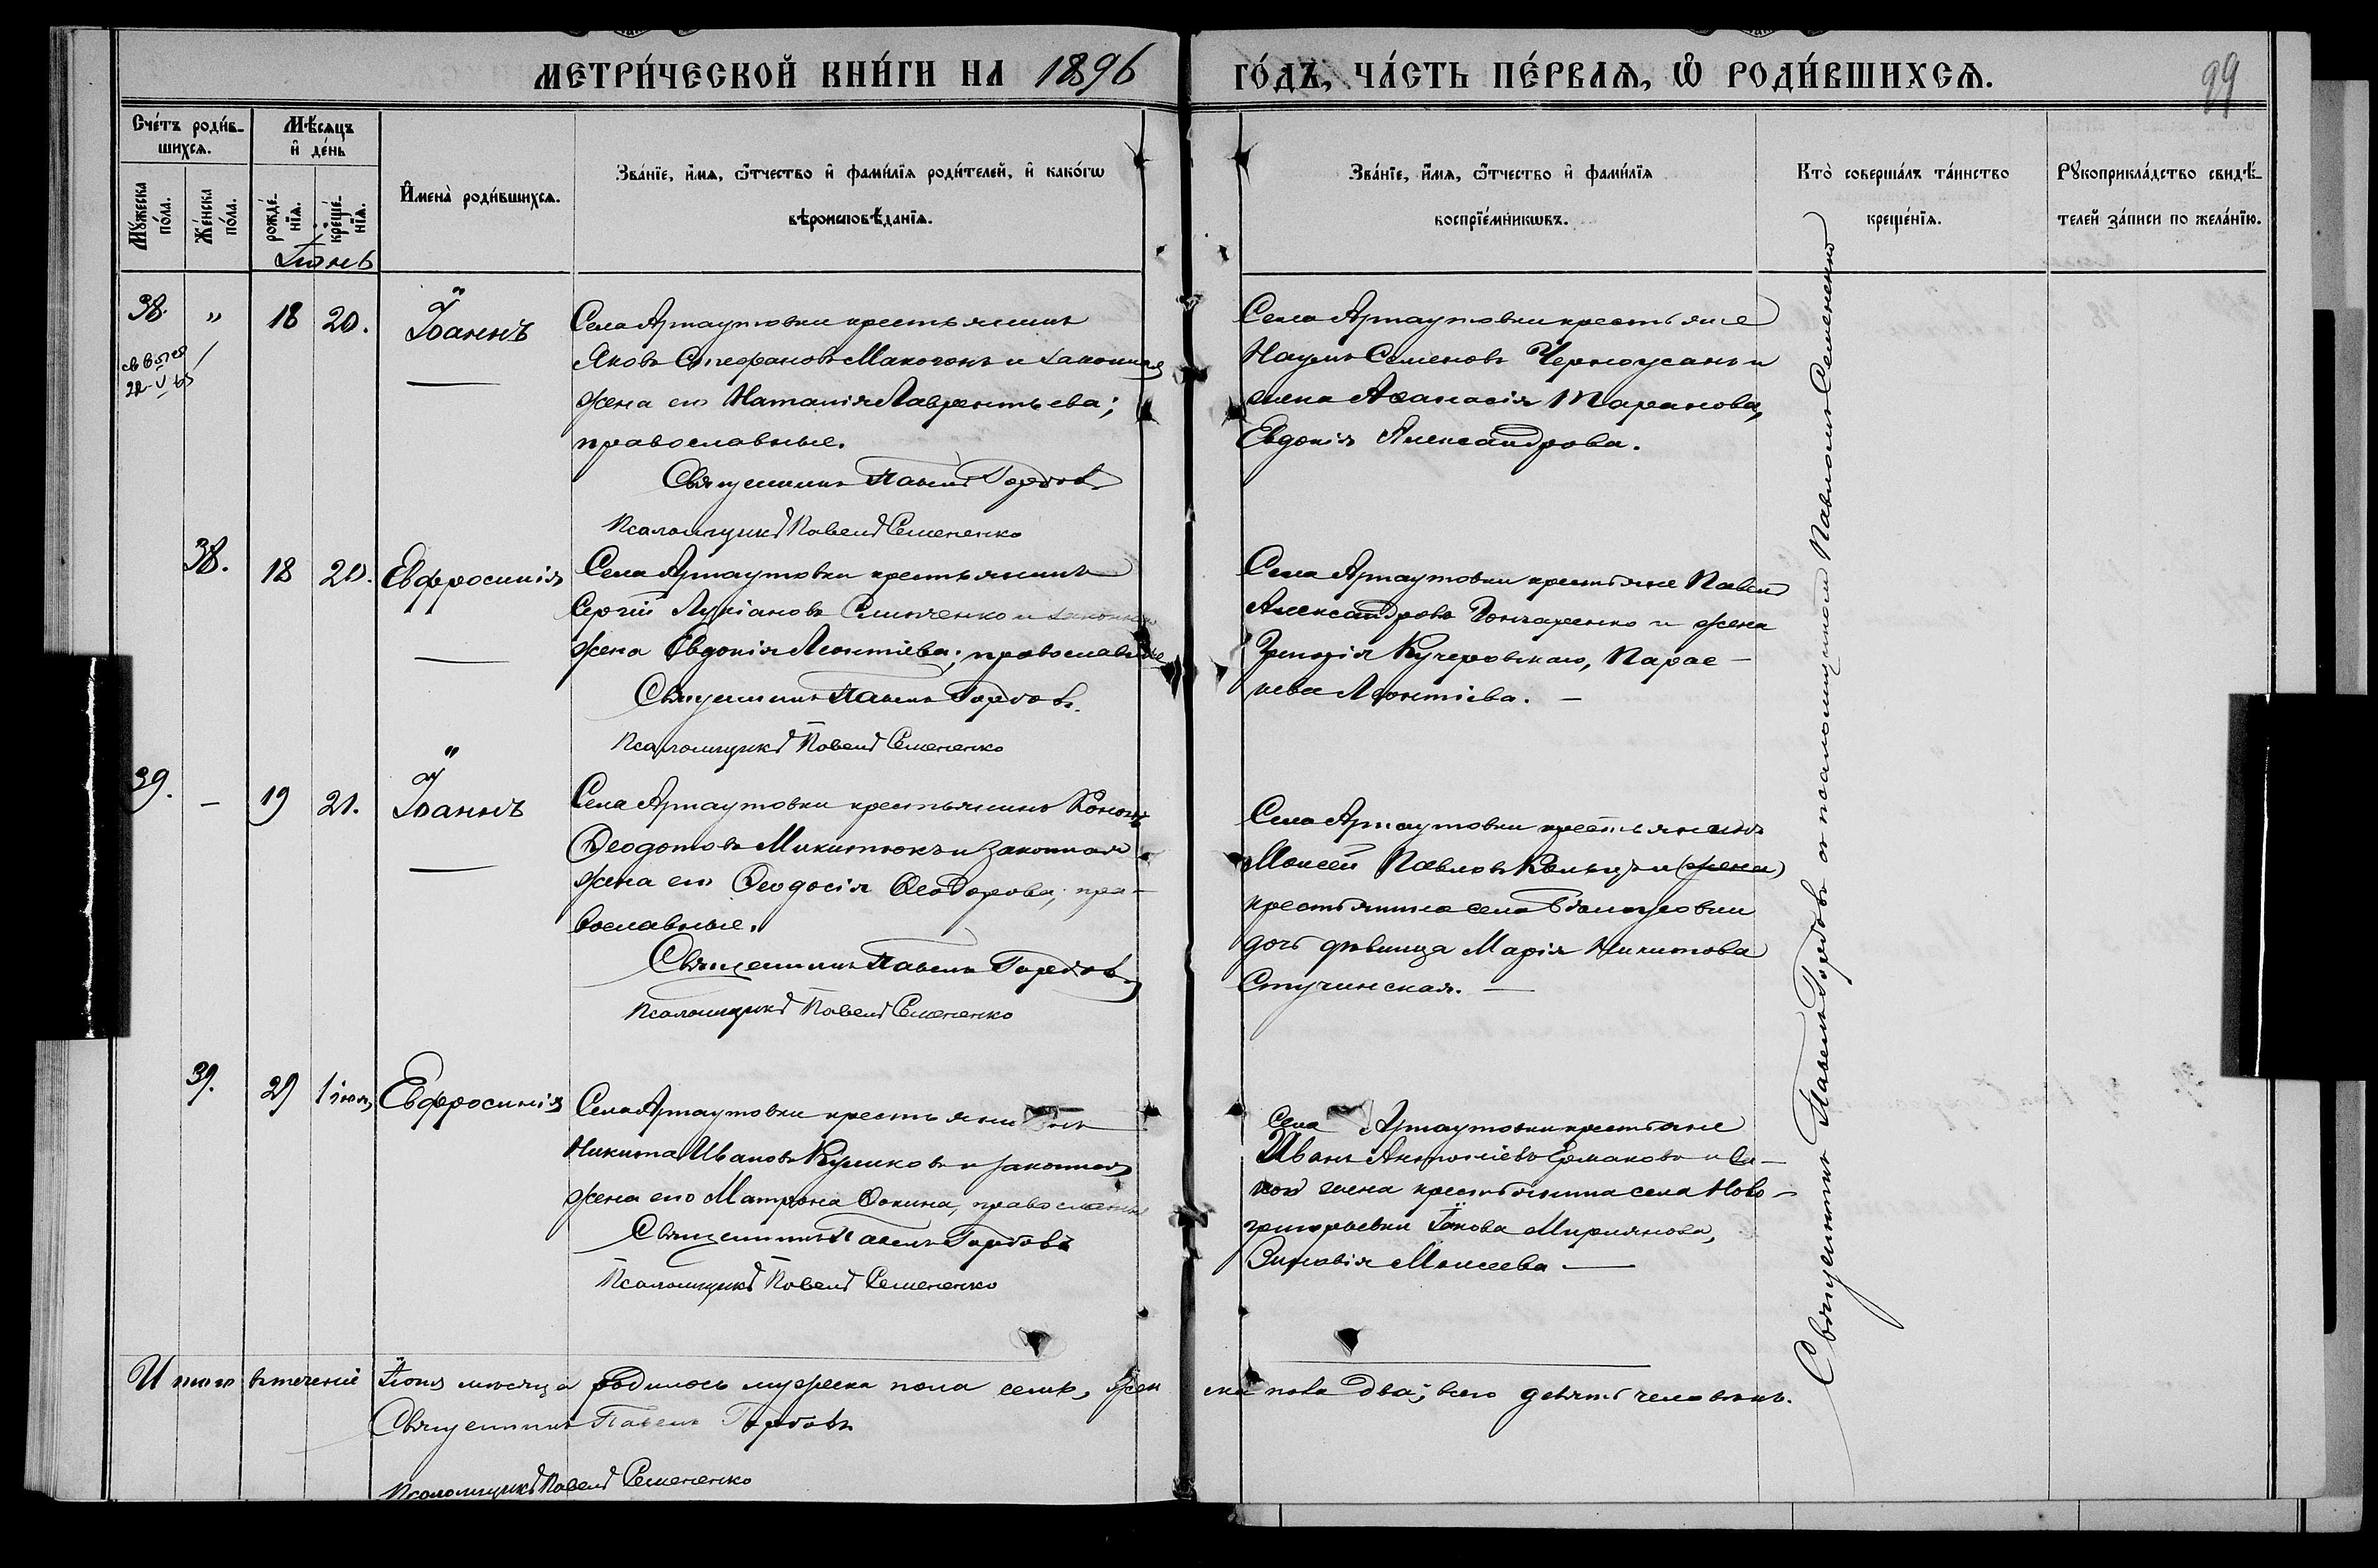 МЕТРИ́ЧЕСКОЙ КНИ́ГИ НА 1896 ГО́ДЪ, ЧА́СТЬ ПЕ́РВАЯ, Ѽ РОДИ́ВШИХСЯ.
99
Сче́тъ роди́в-
шихся.
Мѣ́сяцъ
и҆ де́нь
Мꙋ́жеска
по́ла.
Же́нска
по́ла.
рожде́-
нїя.
креще́-
нїя.
Іюнь
И҆мена̀ роди́вшихся.
Зва́нїе, и҆́мя, ѻ҆́тчество и҆ фами́лїя роди́телей, и҆ како́гѡ
вѣроисповѣ́данїя.
Зва́нїе, и҆́мя, ѻ҆́тчество и҆ фами́лїя
воспрїе́мникѡвъ.
Кто̀ соверша́лъ та́инство
креще́нїя.
Рꙋкоприкла́дство свидѣ́-
телей за́писи по жела́нїю.
38. " 18 20. Іоаннъ
Села Артаутовки крестьянинъ
Яковъ Стефановъ Макогонъ и законная
жена его Наталія Лаврентьева;
православные.
Священникъ Павелъ Горбовъ
Псаломщикъ Павелъ Семененко
Села Артаутовки крестьяне
Наумъ Семеновъ Черноусанъ и
жена Аѳанасія Таранова,
Евдокія Александрова.
38. 18 20. Евфросинія
Села Артаутовки крестьянинъ
Сергій Лукіановъ и законная
жена Евдокія Леонтіева; православные
Священникъ Павелъ Горбовъ.
Псаломщикъ Павелъ Семененко
Села Артаутовки крестьяне Павелъ
Александровъ Гончаренко и жена
Григорія Кучеровскаго, Парас-
кева Леонтіева. —
39. — 19 21. Іоаннъ
Села Артаутовки крестьянинъ Кононъ
Ѳеодотовъ Микитюкъ и законная
жена его Ѳеодосія Ѳеодорова, пра-
вославные.
Священникъ Павелъ Горбовъ
Псаломщикъ Павелъ Семененко
Села Артаутовки крестьянинъ
Моисей Павловъ и (жена)
крестьянина села
дочь дѣвица Марія Никитова
Стучинская. —
39. 29 1 іюля Евфросинія
Села Артаутовки крестьянинъ
Никита Ивановъ Куликовъ и законная
жена его Матрона Ѳокина, православные
Священникъ Павелъ Горбовъ
Псаломщикъ Павелъ Семененко
Села Артаутовки крестьяне
Иванъ Антоніевъ Ермаковъ и
жена крестьянина села Ново-
григорьевки Іакова Мирлянова,
Зиновія Моисеева —
Священникъ Павелъ Горбовъ съ псаломщикомъ Павломъ Семененко
Итого въ теченіе Іюня мѣсяца родилось мужеска пола семь, женска пола два; всего девять человѣкъ.
Священникъ Павелъ Горбовъ
Псаломщикъ Павелъ Семененко